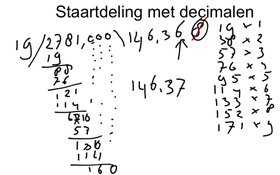 Staartdeling met decimalen
19/2781,000\146,368
19
88
76
121
114
70
57
130
114
160
146.37
19 x 1
38 x 2
57 x 3
76 x 4
95 x 5
114 x 6
133 x 7
152 x 8
171 x 9